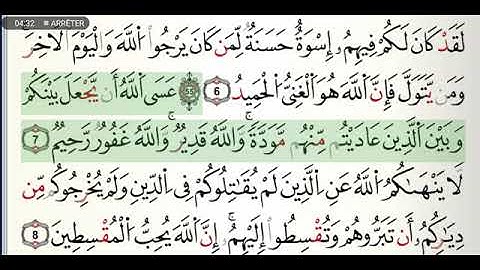 04:32 ■ ARRÊTER
لَقَدْ كَانَ لَكُمْ فِيهِمُۥٓ إِسْوَةٌ حَسَنَةٌ لِّمَن كَانَ يَرْجُوا۟ اَ۬للَّهَ وَالْيَوْمَ اَ۬لَاخِرَ
وَمَن يَّتَوَلَّ فَإِنَّ اَ۬للَّهَ هُوَ اَ۬لْغَنِيُّ اُ۬لْحَمِيدُ 6 ۞ عَسَى اَ۬للَّهُ أَن يَّجْعَلَ بَيْنَكُمْ
وَبَيْنَ اَ۬لَّذِينَ عَادَيْتُم مِّنْهُم مَّوَدَّةٗ وَاللَّهُ قَدِيرٞ وَاللَّهُ غَفُورٞ رَّحِيمٞ 7
لَّا يَنْهَىٰكُمُ اُ۬للَّهُ عَنِ اِ۬لَّذِينَ لَمْ يُقَٰتِلُوكُمْ فِے اِ۬لدِّينِ وَلَمْ يُخْرِجُوكُم مِّن
دِيَٰرِكُمُۥٓ أَن تَبَرُّوهُمْ وَتُقْسِطُوٓا۟ إِلَيْهِمُۥٓ إِنَّ اَ۬للَّهَ يُحِبُّ اُ۬لْمُقْسِطِينَ 8